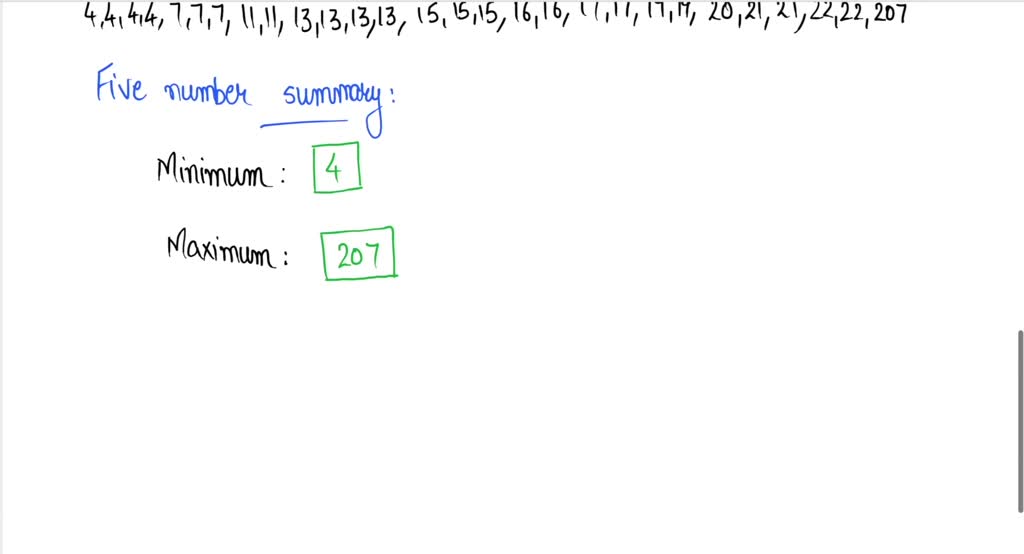 4,4,4,4, 7,7,7, 11,11, 13,13,13,13, 15,15,15, 16,16, 17,17, 17,17, 20,21,21,22,22,207
Five number summary:
Minimum: 4
Maximum: 207